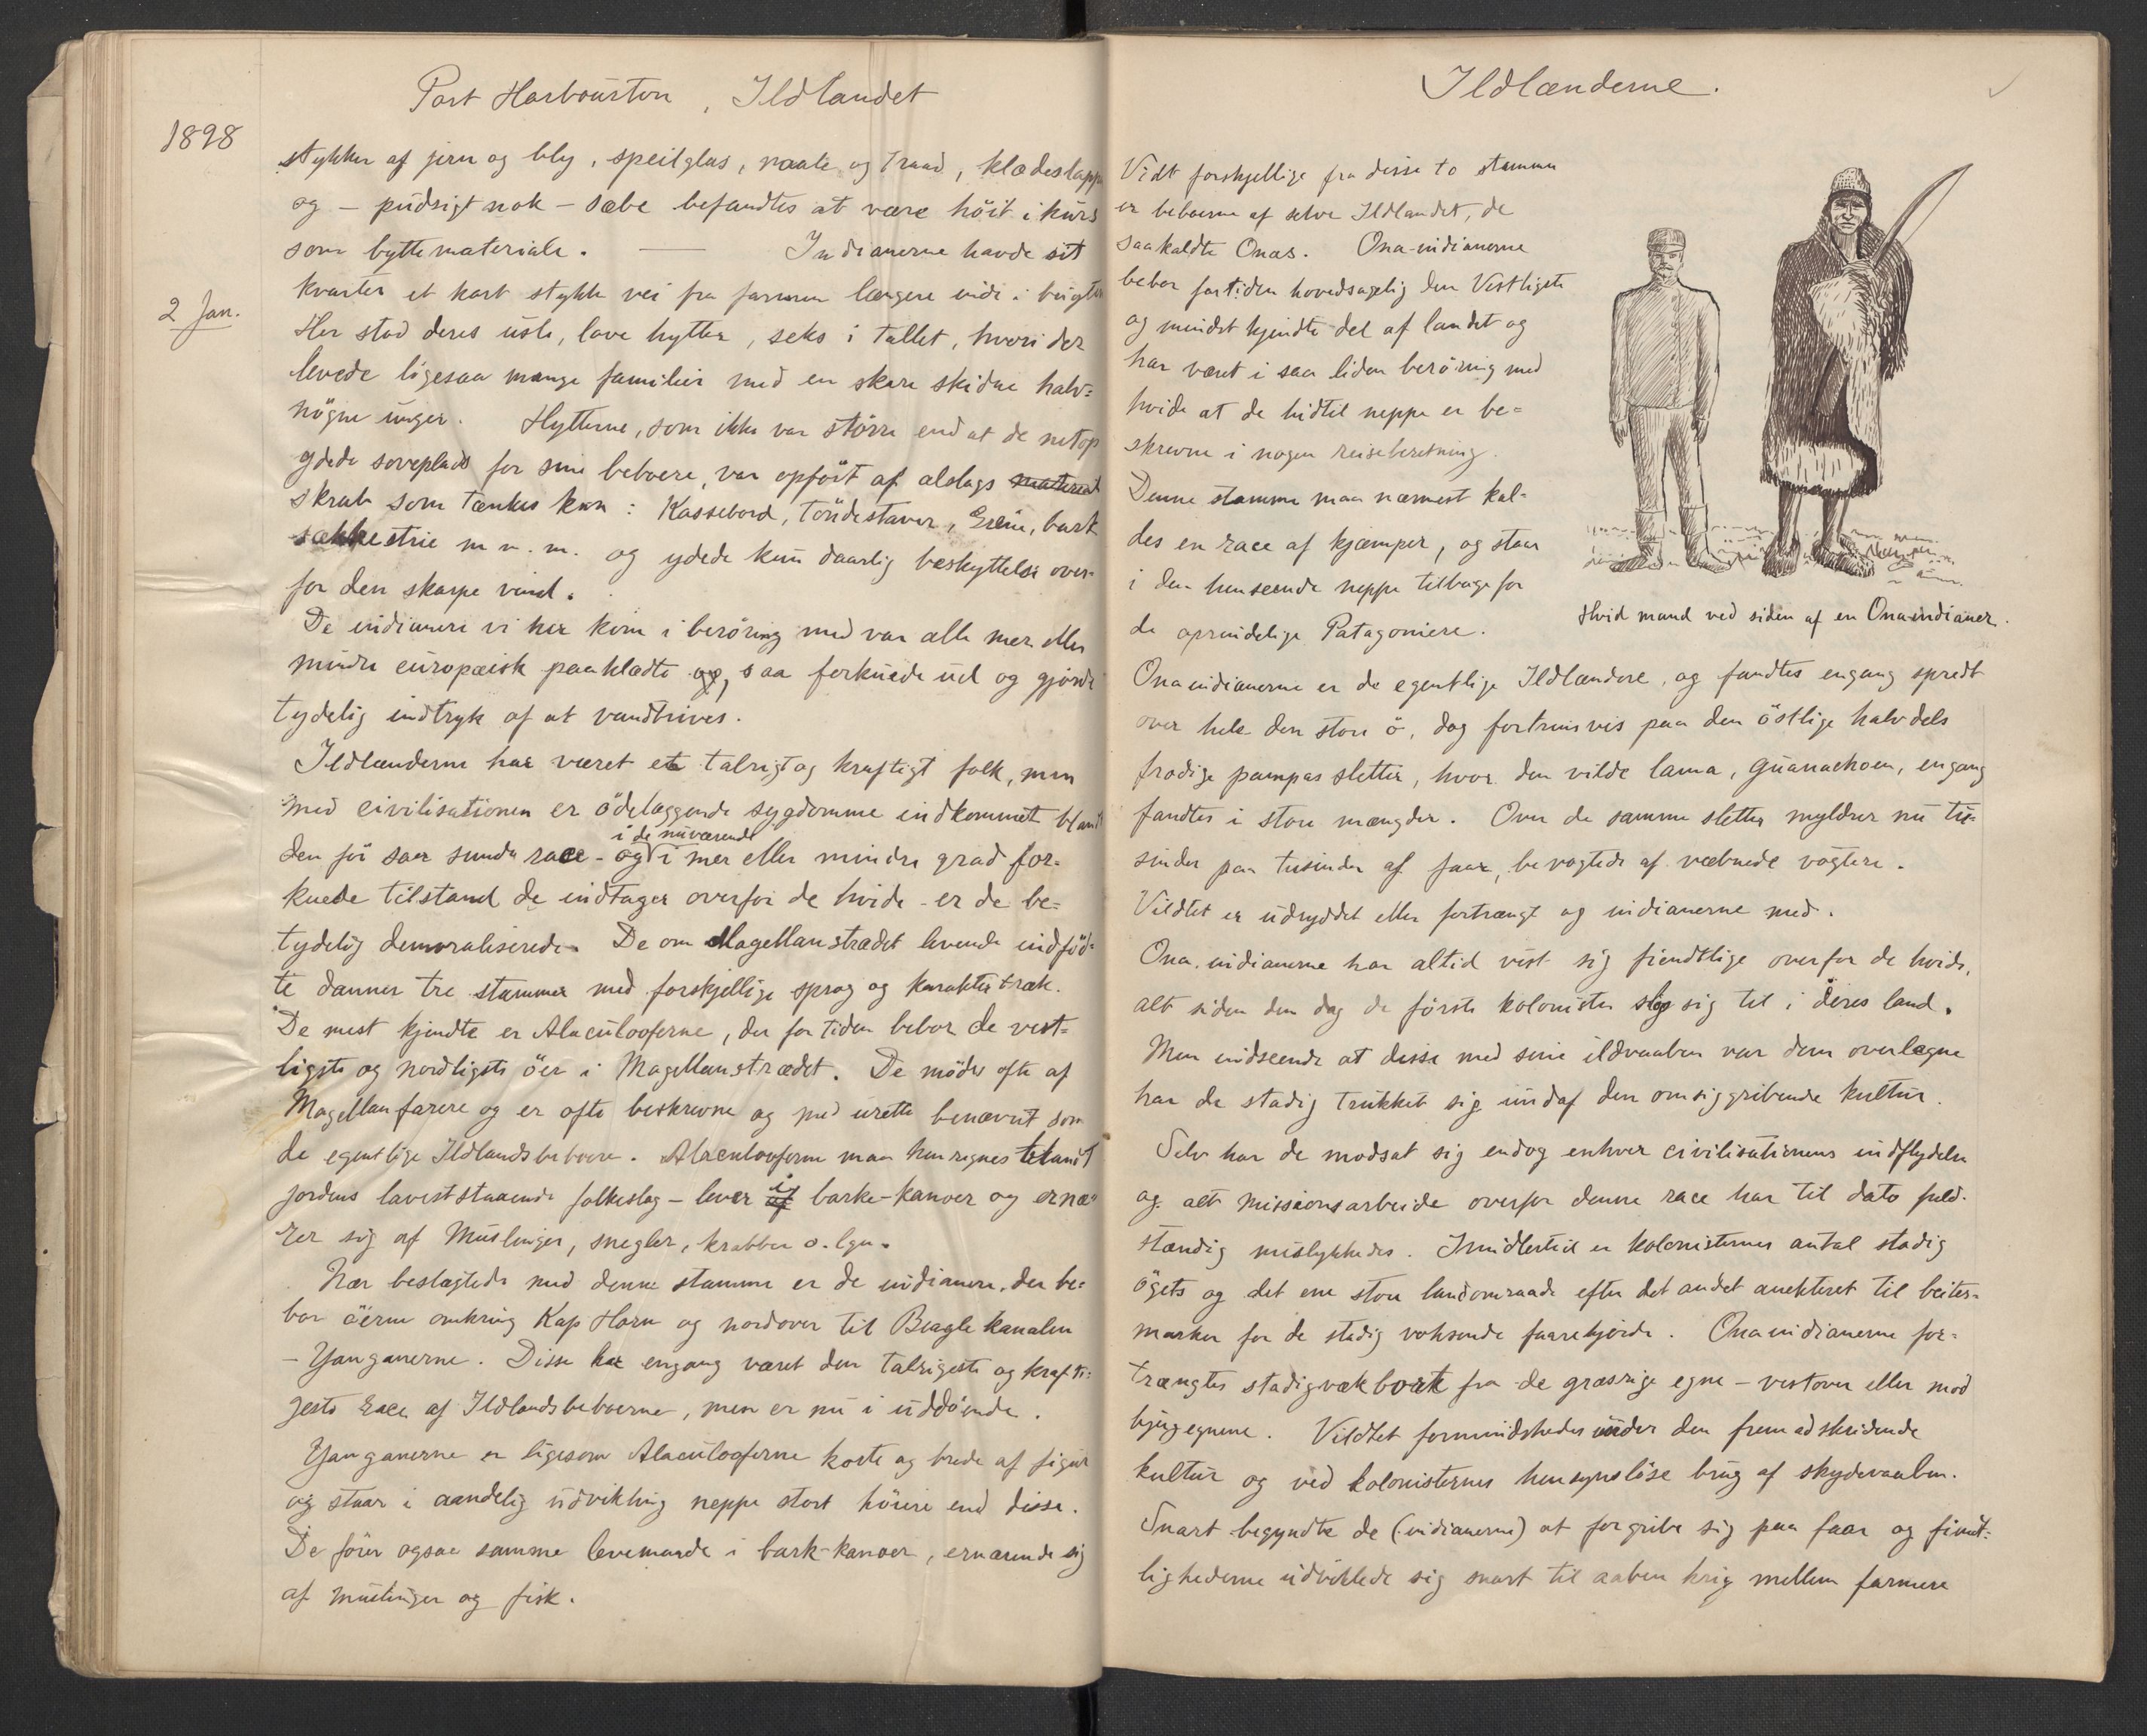 Port Harbourton, Ildlandet
1898
stykker af jern og bly, speilglas, naale og traad, klædeslapper
og – pudsigt nok – sæbe befandtes at være höit i kurs
som byttemateriale. — Indianerne havde sit
2 Jan.
kvarter et kort stykke vei fra farmen længere inde i bugten
Her stod deres usle, lave hytter, seks i tallet, hvori der
levede ligesaa mange familier med en skare skidne halv=
nögne unger. Hytterne, som ikke var större end at de netop
ydede soveplads for sine beboere, var opfört af alslags material
skrab som tænkes kan: Kassebord, töndestaver, Grene, bark
sækkestrie m. v. m. og ydede kun daarlig beskyttelse over=
for den skarpe vind.
De indianere vi her kom i beröring med var alle mer eller
mindre europæisk paaklædte og, saa forkuede ud og gjorde
tydelig indtryk af at vantrives.
Ildlænderne har været et talrigt og kraftigt folk, men
med civilisationen er ödelæggende sygdomme indkommet blandt
den för saa sunde race – og i de nuværende i mer eller mindre grad for-
kuede tilstand de indtager overfor de hvide – er de be=
tydelig demoraliserede. De om Magellanstrædet levende indföd=
te danner tre stammer med forskjellige sprog og karaktertræk.
De mest kjendte er Alaculooferne, der for tiden bebor de vest=
ligste og nordligste öer i Magellanstrædet. De mödes ofte af
Magellanfarere og er ofte beskrevne og med urette benævnt som
de egentlige Ildlandsbeboere. Alaculooferne maa henregnes til
jordens laveststaaende folkeslag – lever af i barke-kanoer og ernæ=
rer sig af Muslinger, snegler, krabber o. lgn.
Nær beslægtede med denne stamme er de indianere, der be=
bor öerne omkring Kap Horn og nordover til Beagle kanalen
– Yanganerne. Disse har engang været den talrigeste og krafti=
geste race af Ildlandsbeboerne, men er nu i uddöende.
Yanganerne er ligesom Alaculooferne korte og brede af figur
og staar i aandelig udvikling neppe stort höiere end disse.
De förer ogsaa samme levemaade i bark-kanoer, ernærende sig
af muslinger og fisk.
Ildlænderne.
Vidt forskjellige fra disse to stammer
er beboerne af selve Ildlandet, de
saakaldte Onas. Ona-indianerne
bebor fortiden hovedsagelig den Vestligste
og mindst kjendte del af landet og
har været i saa liden beröring med
hvide at de hidtil neppe er be=
skrevne i nogen reiseberetning.
Denne stamme maa nærmest kal=
des en race af kjæmper, og staar
i den henseende neppe tilbage for
de oprindelige Patagoniere.
Hvid mand ved siden af en Onaindianer.
Onaindianerne er de egentlige Ildlændere, og fandtes engang spredt
over hele den store ö, dog fortrinsvis paa den östlige halvdels
frodige pampas sletter, hvor den vilde lama, guanachoen, engang
fandtes i store mængder. Over de samme sletter myldrer nu tu=
sinder paa tusinder af faar, bevogtede af væbnede vogtere.
Vildtet er udryddet eller fortrængt og indianerne med.
Ona-indianerne har altid vist sig fiendtlige overfor de hvide,
alt siden den dag de förste kolonister slog sig til i deres land.
Men indseende at disse med sine ildvaaben var dem overlegne
har de stadig trukket sig undaf den omsiggribende kultur.
Selv har de modsat sig endog enhver civilisationens indflydelse
og alt missionsarbeide overfor denne race har til dato fuld-
stændig mislykkedes. Imidlertid er kolonisternes antal stadig
öget og det ene store landomraade efter det andet anekteret til beites-
marker for de stadig voksende faarehjorde. Onaindianerne for=
trængtes stadigvæk bort fra de græsrige egne – vestover eller mod
bjergegnene. Vildtet formindskedes under den fremadskridende
kultur og ved kolonisternes hensynslöse brug af skydevaaben.
Snart begyndte de (indianerne) at forgribe sig paa faar og fiendt=
lighederne udviklede sig snart til aaben krig mellem farmere